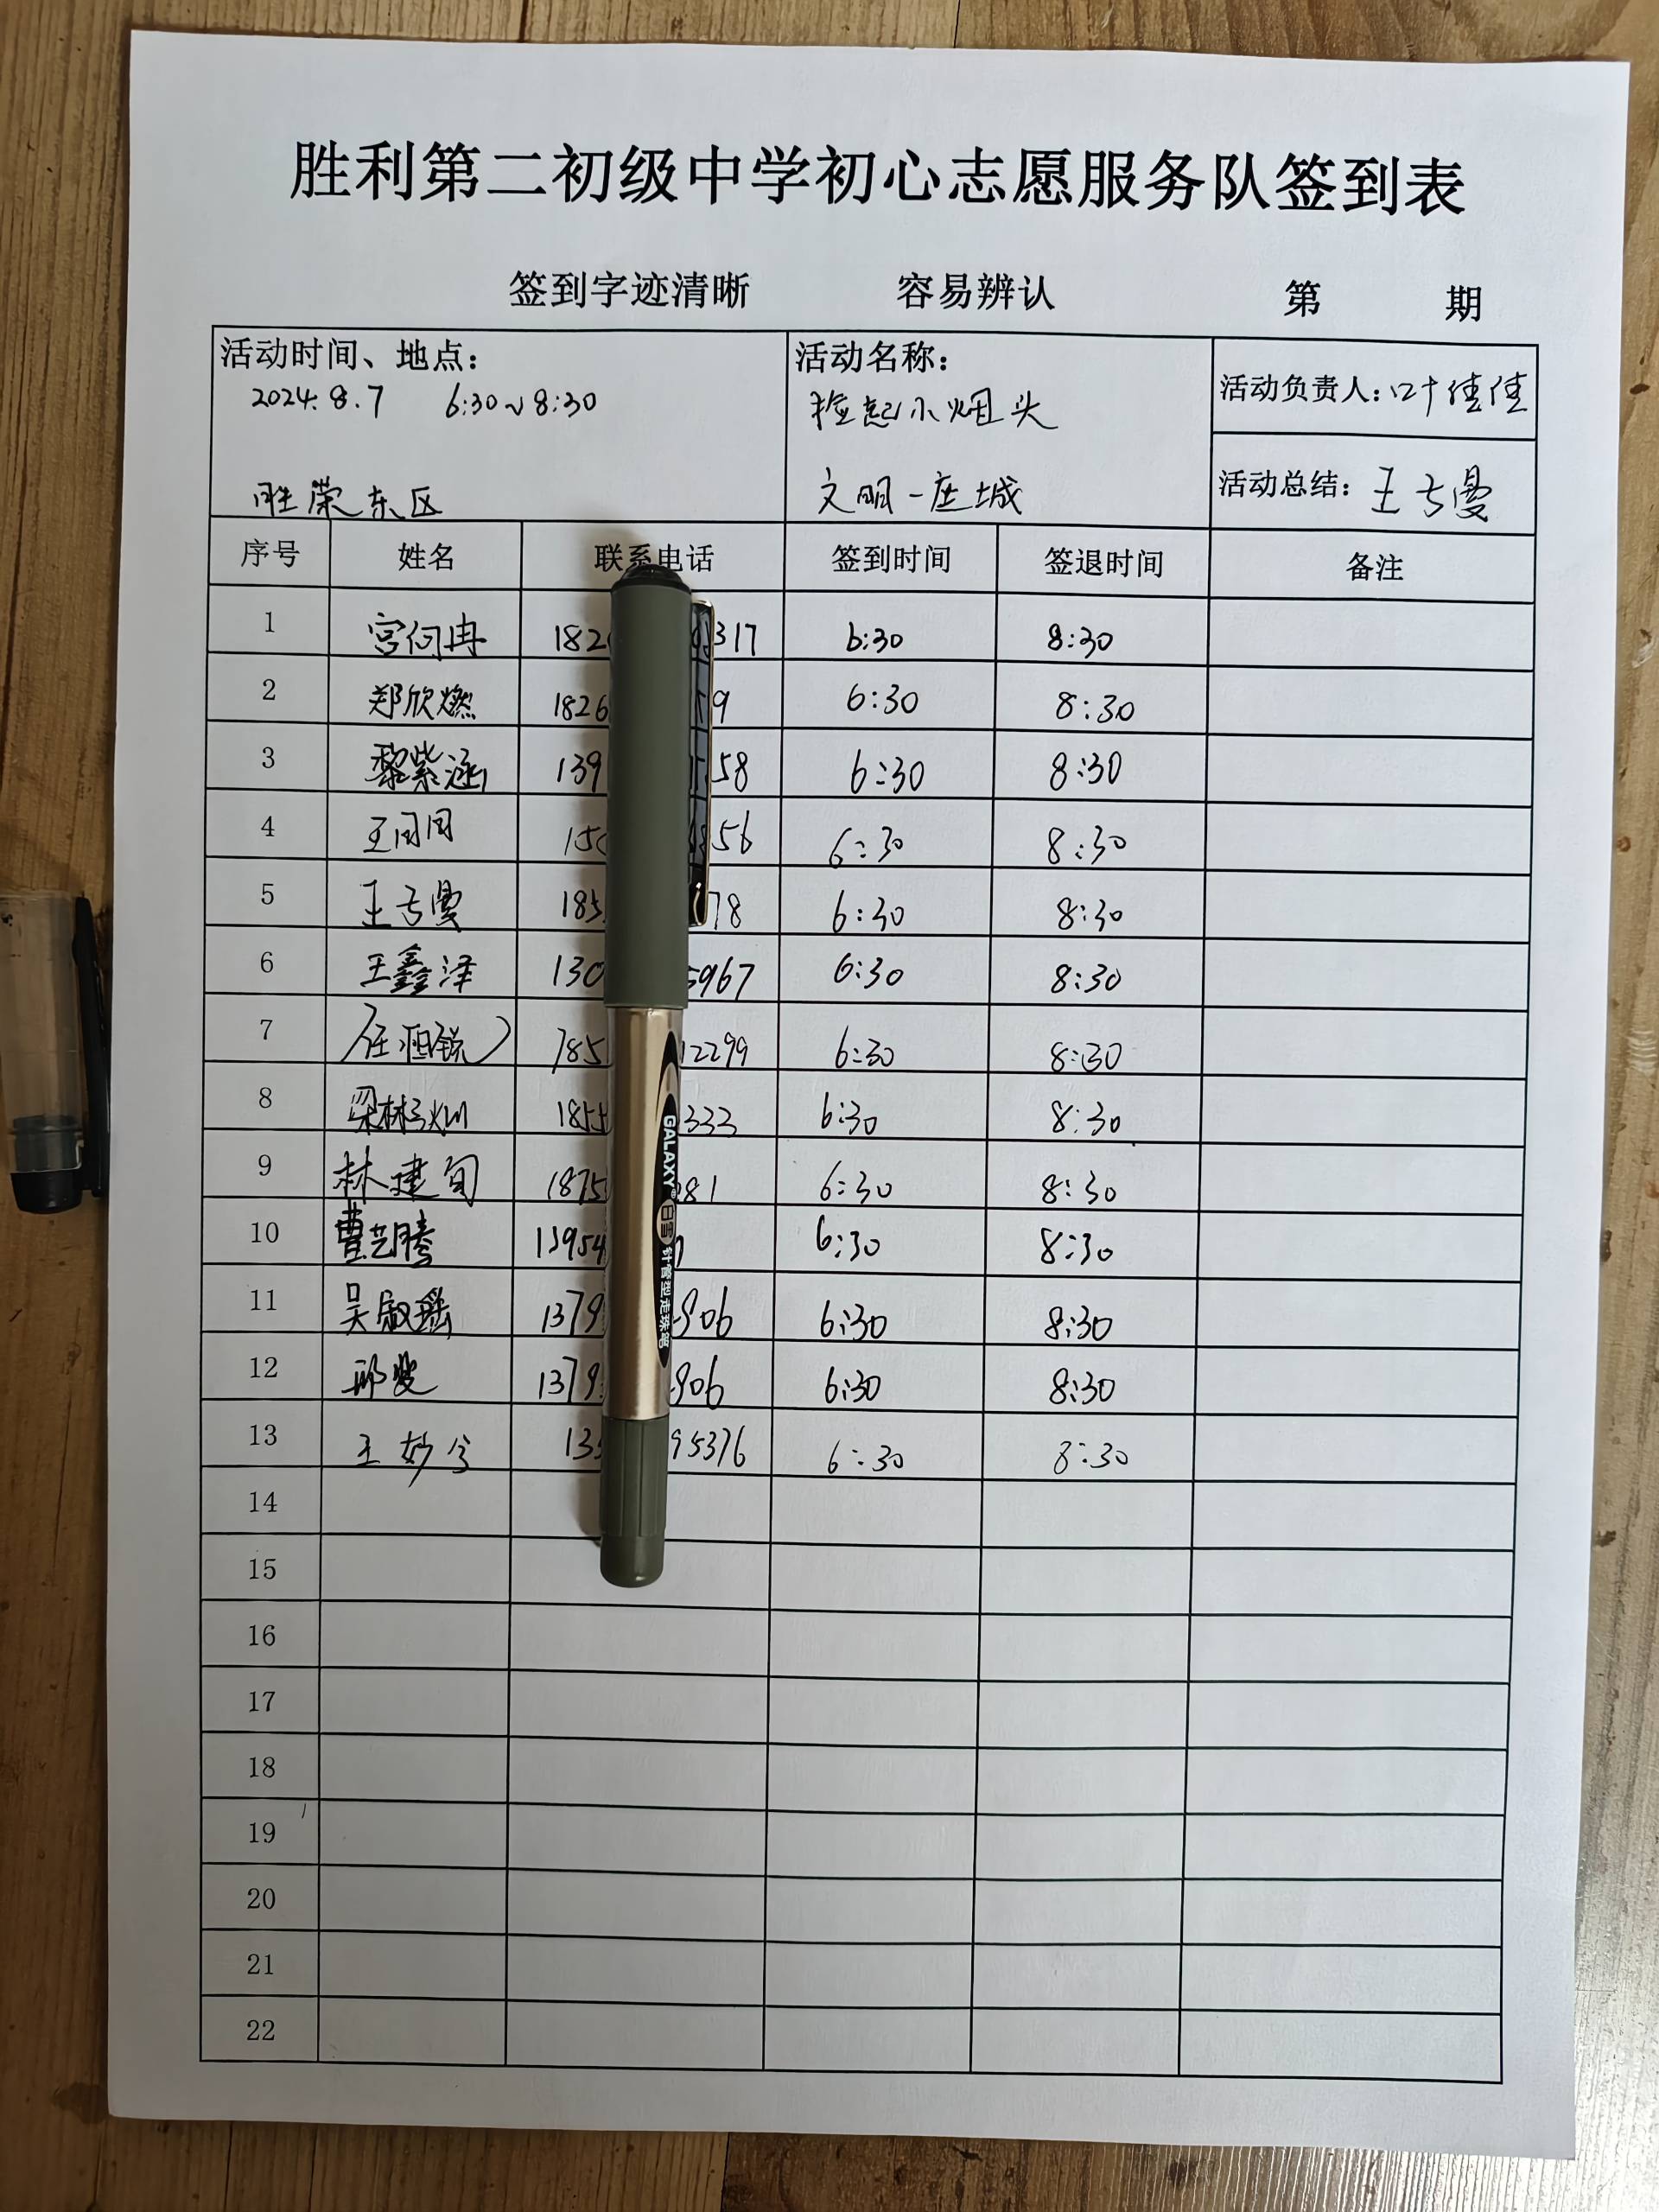 胜利第二初级中学初心志愿服务队签到表
签到字迹清晰 容易辨认 第 期
活动时间、地点: 活动名称: 活动负责人: 叶佳佳
2024.8.7 6:30~8:30 捡起小烟头
胜荣东区 文明一座城 活动总结: 王
序号 姓名 联系电话 签到时间 签退时间 备注
1 宫何冉 182 317 6:30 8:30
2 郑欣燃 1826 9 6:30 8:30
3 黎紫涵 139 58 6:30 8:30
4 王同同 150 56 6:30 8:30
5 王 185 78 6:30 8:30
6 王鑫泽 130 5967 6:30 8:30
7 任 185 12299 6:30 8:30
8 梁 1855 333 6:30 8:30
9 林建旬 1875 281 6:30 8:30
10 曹艺腾 13954 6:30 8:30
11 吴淑瑶 1379 906 6:30 8:30
12 邱 1379 906 6:30 8:30
13 王妙今 135 95376 6:30 8:30
14
15
16
17
18
19
20
21
22
GALAXY 白雪 针管型走珠笔